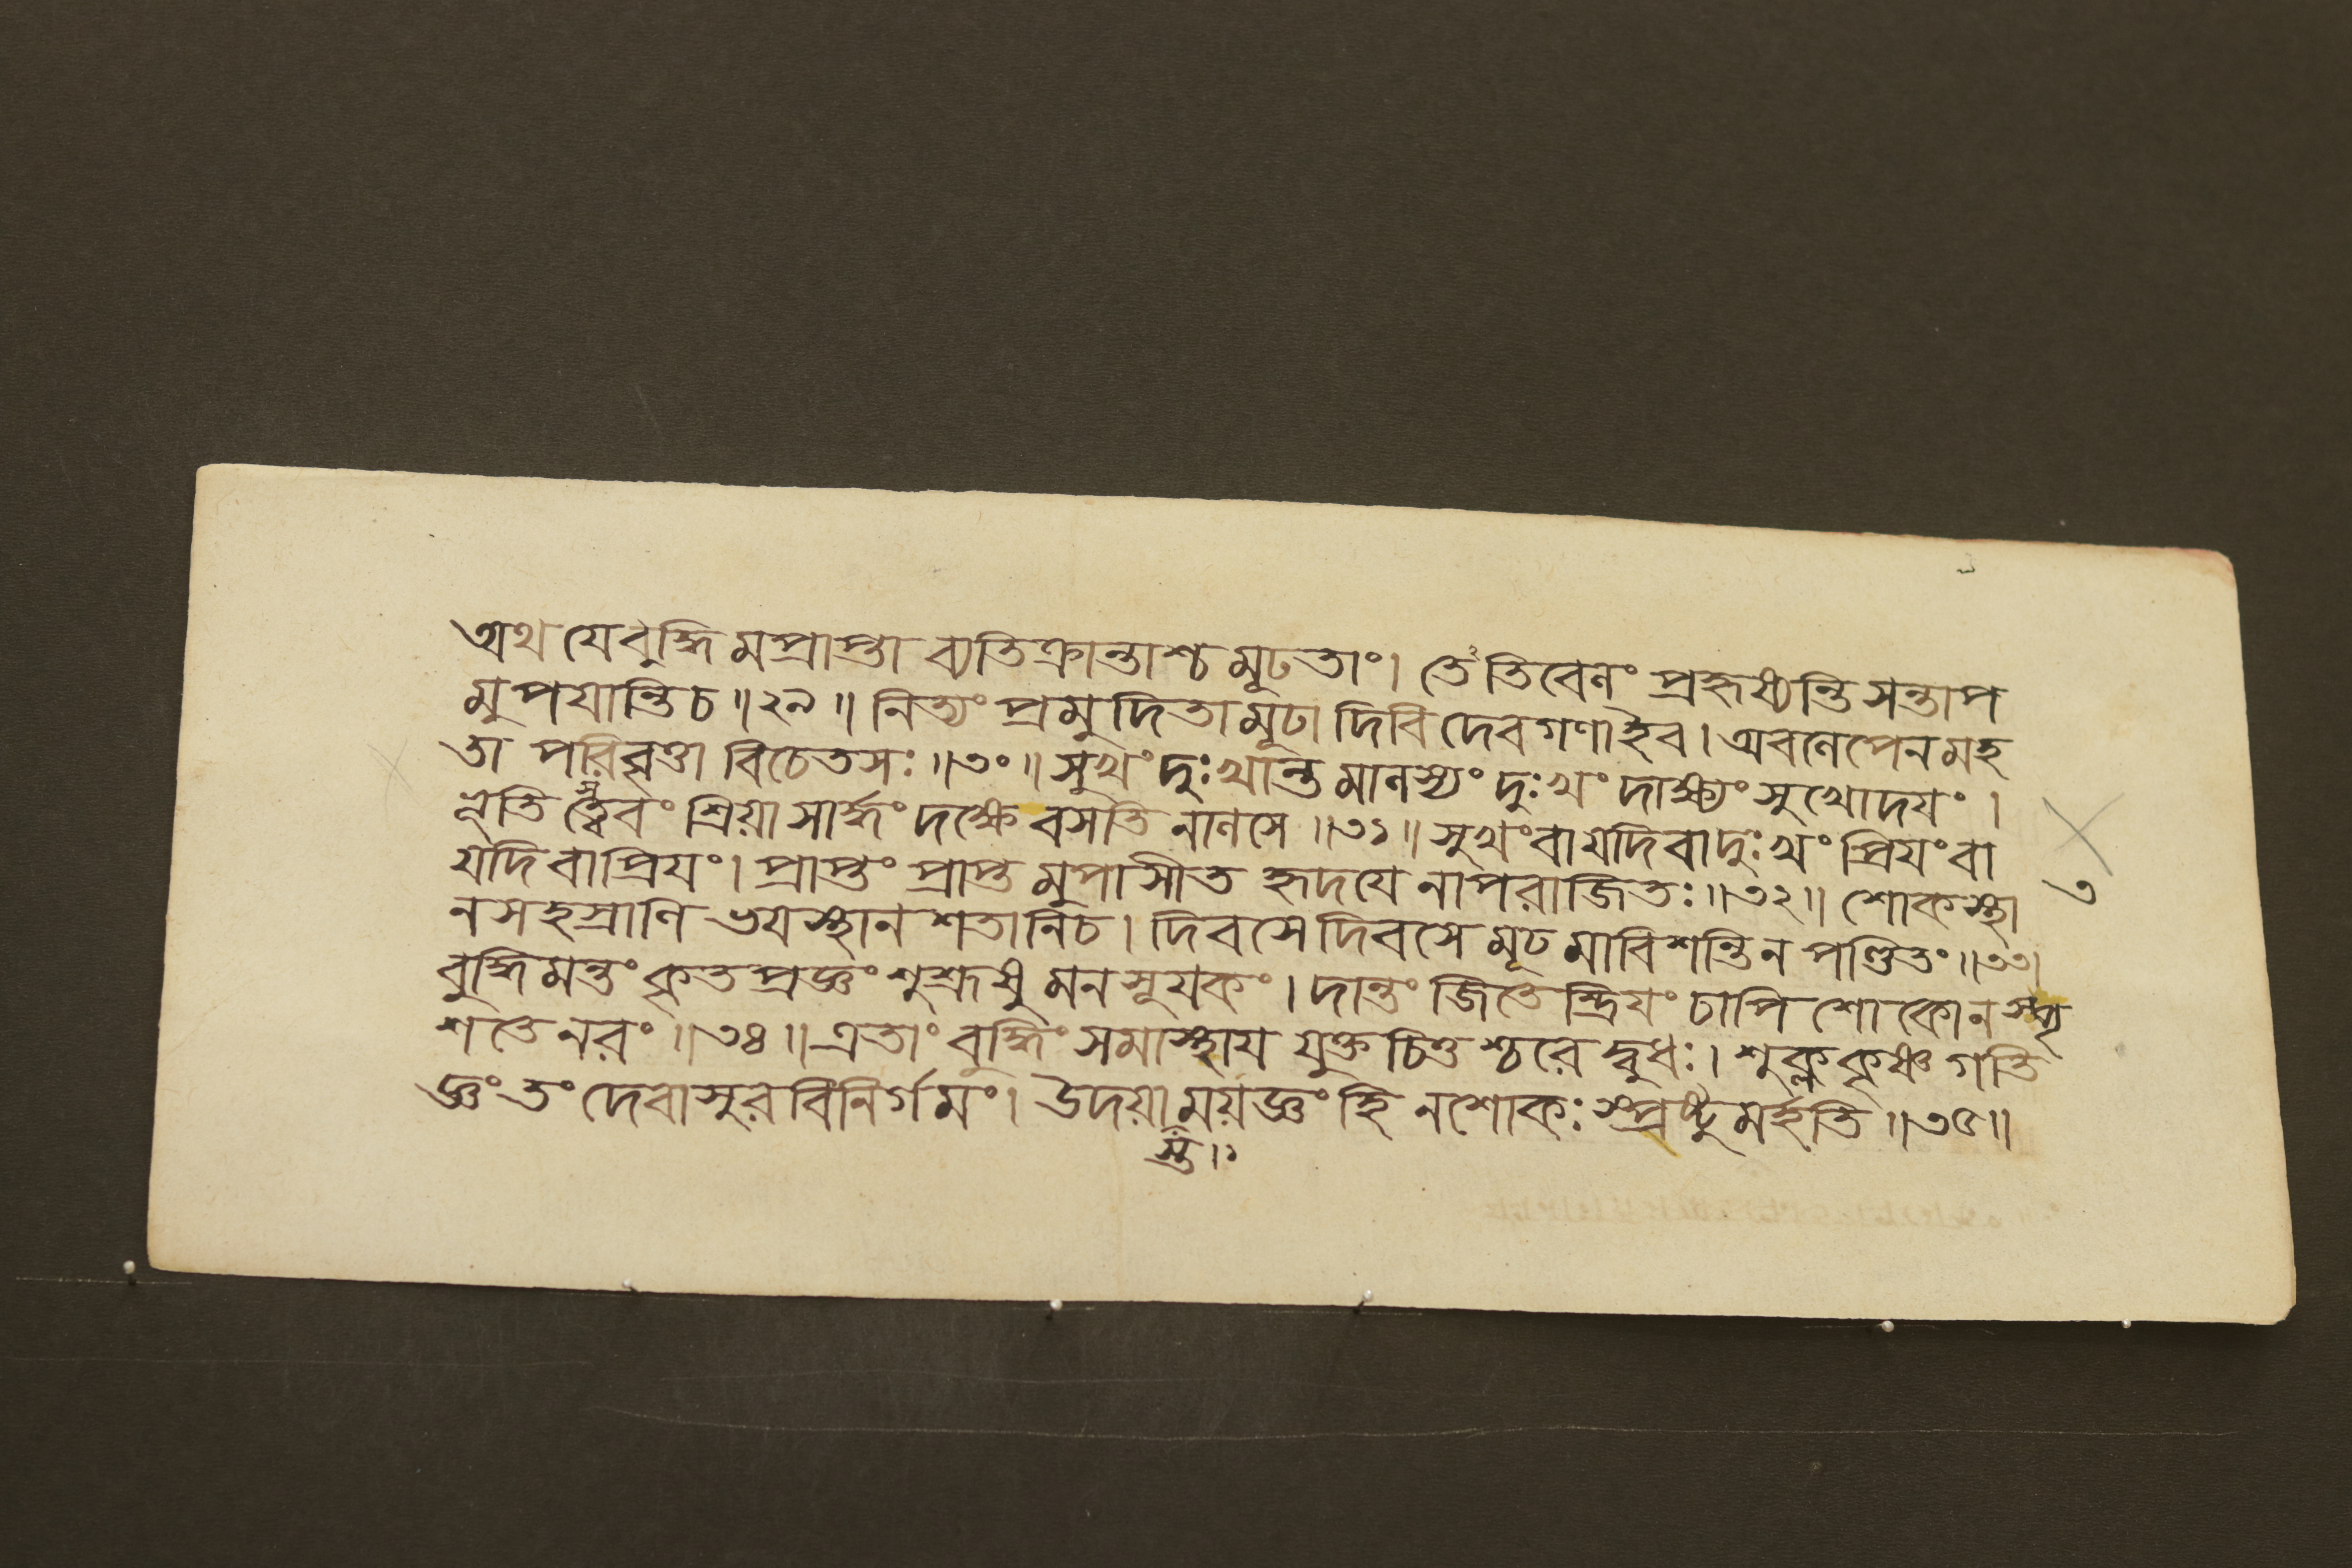 অথ যে বুদ্ধিমপ্রাপ্তা ব্যতিক্রান্তাশ্চ মূঢতাং। তেঽতিবেলং প্রহৃষ্যন্তি সন্তাপ
মুপযান্তি চ॥২৯॥ নিত্যং প্রমুদিতা মূঢা দিবি দেবগণা ইব। অবলেপেন মহ
তা পরিতৃপ্তা বিচেতসঃ॥৩০॥ সুখং দুঃখান্তমালস্যং দুঃখং দাক্ষ্যং সুখোদযং।
ভূতিস্ত্বেবং শ্রিয়া সার্দ্ধং দক্ষে বসতি নালসে॥৩১॥ সুখং বা যদি বা দুঃখং প্রিযং বা
যদি বাপ্রিযং। প্রাপ্তং প্রাপ্তমুপাসীত হৃদযেনাপরাজিতঃ॥৩২॥ শোকস্থা
৩
নসহস্রাণি ভযস্থানশতানি চ। দিবসে দিবসে মূঢমাবিশন্তি ন পণ্ডিতং॥৩৩।
বুদ্ধিমন্তং কৃতপ্রজ্ঞং শুশ্রূষুমনসূযকং। দান্তং জিতেন্দ্রিযং চাপি শোকো ন স্পৃ
শতে নরং॥৩৪॥ এতাং বুদ্ধিং সমাস্থায যুক্তচিত্তশ্চরেদ্বুধঃ। শুক্লকৃষ্ণগতি
জ্ঞং তং দেবাসুরবিনির্গমং। উদয়াময়জ্ঞং হি ন শোকঃ স্প্রষ্টুমর্হতি॥৩৫॥
স্ত॥